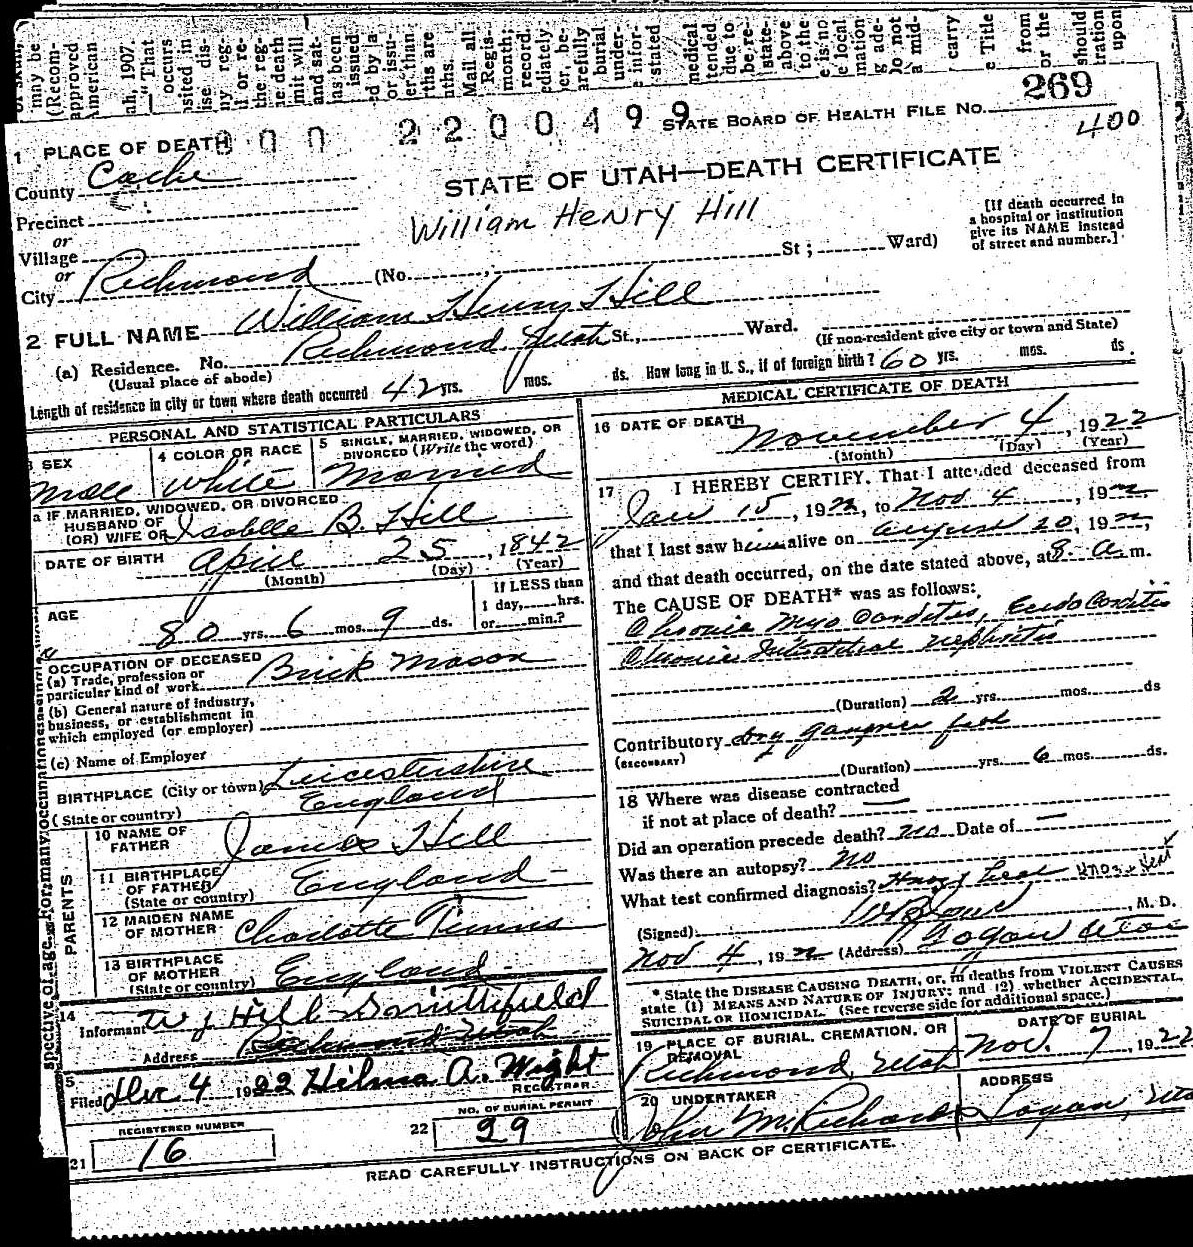 269
STATE BOARD OF HEALTH FILE NO.
400
000 2200499
1 PLACE OF DEATH
County Cache
STATE OF UTAH—DEATH CERTIFICATE
Precinct
William Henry Hill
[If death occurred in
a hospital or institution
give its NAME instead
of street and number.]
or
Village
or
City Richmond (No. St; Ward)
2 FULL NAME William Henry Hill
(a) Residence. No. Richmond Utah St., Ward.
(Usual place of abode)
(If non-resident give city or town and State)
Length of residence in city or town where death occurred 42 yrs. mos. ds. How long in U. S., if of foreign birth? 60 yrs. mos. ds.
PERSONAL AND STATISTICAL PARTICULARS
3 SEX
Male
4 COLOR OR RACE
White
5 SINGLE, MARRIED, WIDOWED, OR
DIVORCED (Write the word)
Married
a IF MARRIED, WIDOWED, OR DIVORCED
HUSBAND OF
(OR) WIFE OF Isabelle B. Hill
DATE OF BIRTH April 25, 1842
(Month) (Day) (Year)
AGE
80 yrs. 6 mos. 9 ds.
If LESS than
1 day, hrs.
or min.?
OCCUPATION OF DECEASED
(a) Trade, profession or
particular kind of work Brick Mason
(b) General nature of industry,
business, or establishment in
which employed (or employer)
(c) Name of Employer
BIRTHPLACE (City or town) Leicestershire
(State or country) England
PARENTS
10 NAME OF
FATHER James Hill
11 BIRTHPLACE
OF FATHER England
(State or country)
12 MAIDEN NAME
OF MOTHER Charlotte
13 BIRTHPLACE
OF MOTHER England
(State or country)
14
Informant W J Hill Smithfield
Address Richmond Utah
Filed Dec 4 1922 Hilma A. Wight
REGISTRAR
REGISTERED NUMBER
21 16
NO. OF BURIAL PERMIT
22 29
MEDICAL CERTIFICATE OF DEATH
16 DATE OF DEATH November 4, 1922
(Month) (Day) (Year)
17 I HEREBY CERTIFY, That I attended deceased from
Jan 15, 1922, to Nov 4, 1922
that I last saw him alive on August 20, 1922,
and that death occurred, on the date stated above, at 8. a. m.
The CAUSE OF DEATH* was as follows:
Chronic Myo Carditis, Endo Carditis
Chronic Interstitial Nephritis
(Duration) 2 yrs. mos. ds
Contributory Dry gangrene feet
(SECONDARY)
(Duration) yrs. 6 mos. ds.
18 Where was disease contracted
if not at place of death? —
Did an operation precede death? No Date of —
Was there an autopsy? No
What test confirmed diagnosis?
(Signed) M. D.
Nov 4, 1922 (Address) Logan Utah
* State the DISEASE CAUSING DEATH, or, in deaths from VIOLENT CAUSES
state (1) MEANS AND NATURE OF INJURY; and (2) whether ACCIDENTAL,
SUICIDAL OR HOMICIDAL. (See reverse side for additional space.)
19 PLACE OF BURIAL, CREMATION, OR
REMOVAL
Richmond, Utah
DATE OF BURIAL
Nov. 7, 1922
20 UNDERTAKER
John M. Richards
ADDRESS
Logan, Utah
READ CAREFULLY INSTRUCTIONS ON BACK OF CERTIFICATE.